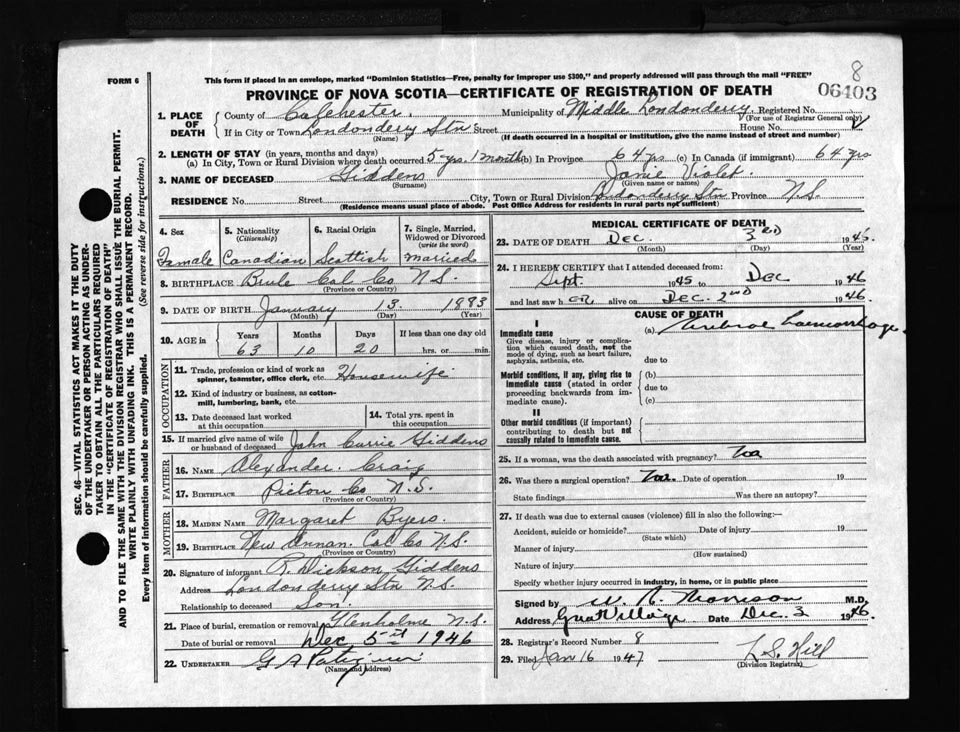 FORM 6
This form if placed in an envelope, marked "Dominion Statistics—Free, penalty for improper use $300," and properly addressed will pass through the mail "FREE"
8
PROVINCE OF NOVA SCOTIA—CERTIFICATE OF REGISTRATION OF DEATH
06403
1. PLACE OF DEATH
County of Colchester. Municipality of Middle Londonderry Registered No.
(For use of Registrar General only)
If in City or Town Londonderry Stn Street House No.
(Name) (If death occurred in a hospital or institution, give the name instead of street and number)
2. LENGTH OF STAY (in years, months and days)
(a) In City, Town or Rural Division where death occurred 5 yrs. 1 month (b) In Province 64 yrs (c) In Canada (if immigrant) 64 yrs
3. NAME OF DECEASED Giddens Janie Violet.
(Surname) (Given name or names)
RESIDENCE No. Street City, Town or Rural Division Londonderry Stn Province N.S.
(Residence means usual place of abode. Post Office Address for residents in rural parts not sufficient)
4. Sex
Female
5. Nationality
(Citizenship)
Canadian
6. Racial Origin
Scottish
7. Single, Married, Widowed or Divorced
(write the word)
Married
8. BIRTHPLACE Brule Col Co N.S.
(Province or Country)
9. DATE OF BIRTH January 13. 1883
(Month) (Day) (Year)
10. AGE in
Years Months Days If less than one day old
63 10 20 hrs. or min.
OCCUPATION
11. Trade, profession or kind of work as
spinner, teamster, office clerk, etc. Housewife
12. Kind of industry or business, as cotton-
mill, lumbering, bank, etc.
13. Date deceased last worked
at this occupation
14. Total yrs. spent in
this occupation
15. If married give name of wife
or husband of deceased John Currie Giddens
FATHER
16. NAME Alexander. Craig
17. BIRTHPLACE Pictou Co N.S.
(Province or Country)
MOTHER
18. MAIDEN NAME Margaret Byers.
19. BIRTHPLACE New Annan. Col Co N.S.
(Province or Country)
20. Signature of informant R. Dickson Giddens
Address Londonderry Stn N.S.
Relationship to deceased Son.
21. Place of burial, cremation or removal Glenholme N.S.
Date of burial or removal Dec 5th 1946
22. UNDERTAKER
(Name and Address)
MEDICAL CERTIFICATE OF DEATH
23. DATE OF DEATH Dec. 3rd 1946.
(Month) (Day) (Year)
24. I HEREBY CERTIFY that I attended deceased from:
Sept. 1945 to Dec 1946
and last saw her alive on Dec. 2nd 1946.
CAUSE OF DEATH
I
Immediate cause
Give disease, injury or complica-
tion which caused death, not the
mode of dying, such as heart failure,
asphyxia, asthenia, etc.
(a) Cerebral haemorrhage
due to
Morbid conditions, if any, giving rise to
immediate cause (stated in order
proceeding backwards from im-
mediate cause).
(b)
due to
(c)
II
Other morbid conditions (if important)
contributing to death but not
causally related to immediate cause.
25. If a woman, was the death associated with pregnancy? No
26. Was there a surgical operation? No. Date of operation 19
State findings Was there an autopsy?
27. If death was due to external causes (violence) fill in also the following:—
Accident, suicide or homicide? Date of injury 19
(State which)
Manner of injury
(How sustained)
Nature of injury
Specify whether injury occurred in industry, in home, or in public place
Signed by W. R. Morrison M.D.
Address Great Village Date Dec. 3 1946
28. Registrar's Record Number 8
29. Filed Jan 16 1947 L S. Hill
(Division Registrar)
SEC. 46—VITAL STATISTICS ACT MAKES IT THE DUTY
OF THE UNDERTAKER OR PERSON ACTING AS UNDER-
TAKER TO OBTAIN ALL THE PARTICULARS REQUIRED
IN THE "CERTIFICATE OF REGISTRATION OF DEATH"
AND TO FILE THE SAME WITH THE DIVISION REGISTRAR WHO SHALL ISSUE THE BURIAL PERMIT.
WRITE PLAINLY WITH UNFADING INK. THIS IS A PERMANENT RECORD.
Every item of information should be carefully supplied. (See reverse side for instructions.)